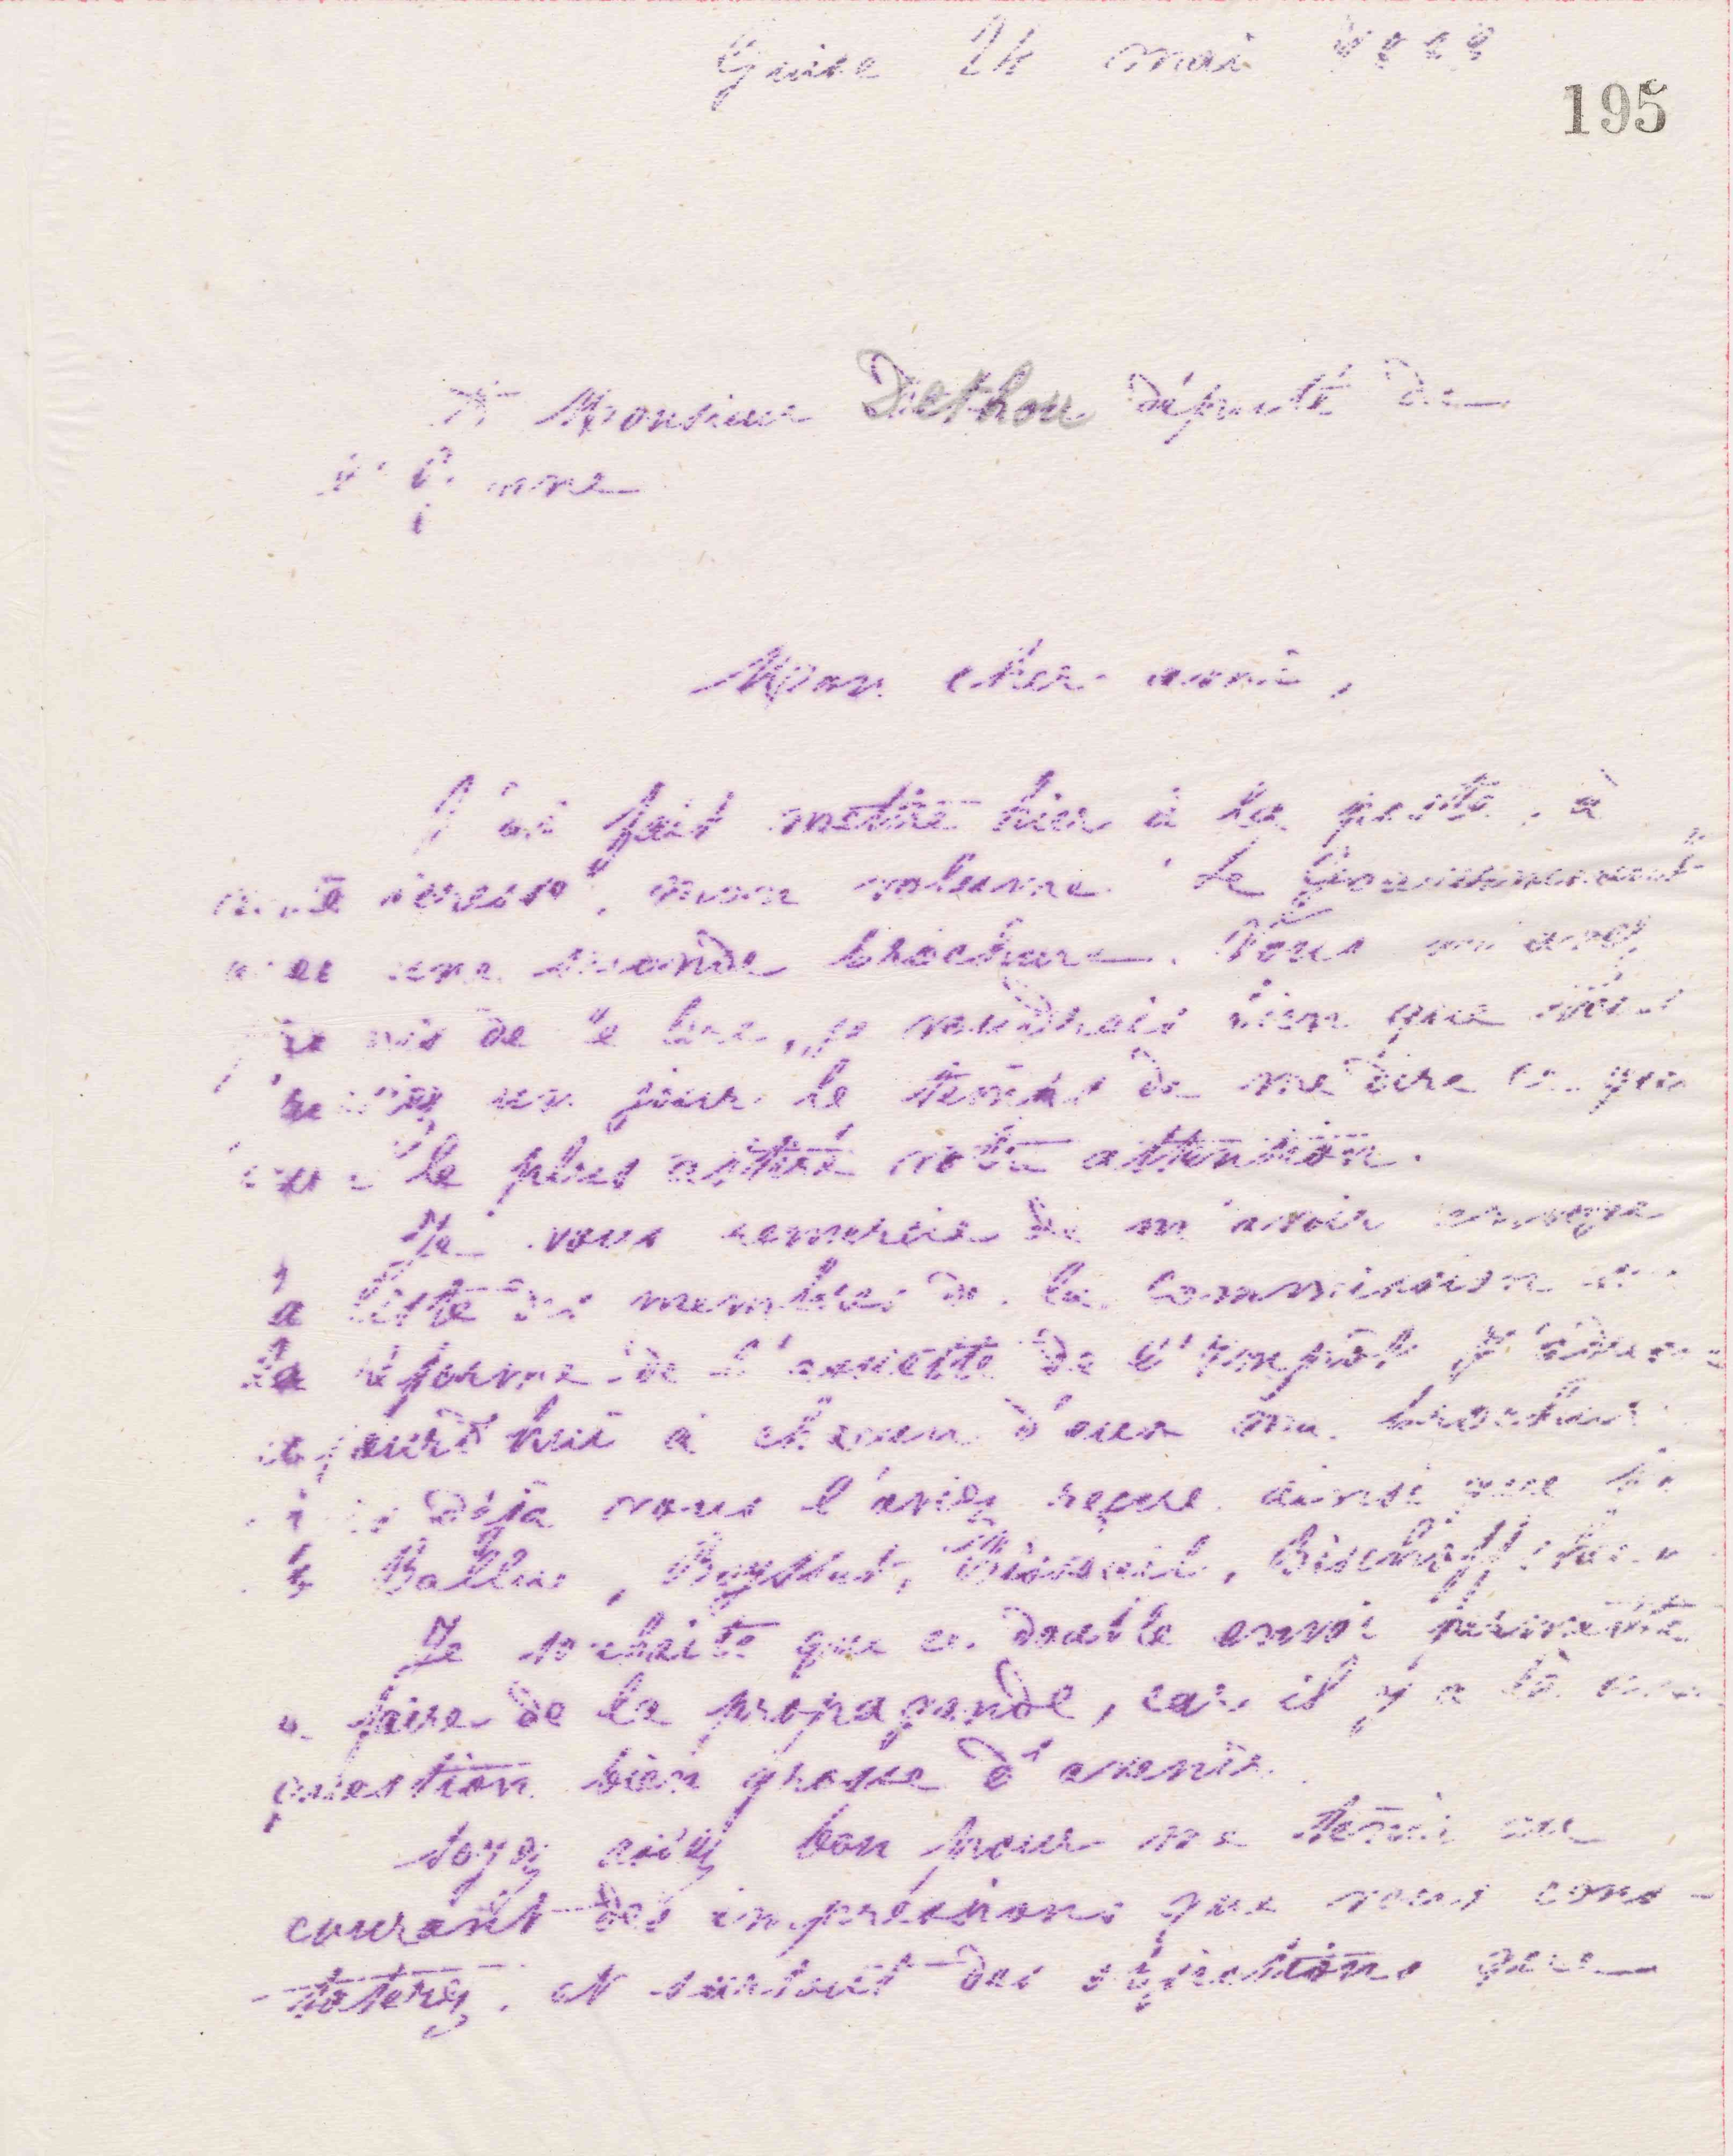 Guise 24 mai
195
A Monsieur Dethou député de
l'Yonne
Mon cher ami,
J'ai fait mettre hier à la poste, à
votre adresse, mon volume Le Gouvernement
avec une seconde brochure. Vous m'avez
promis de le lire, je voudrais bien que vous
un jour le temps de me dire ce qui
aura le plus attiré votre attention.
Je vous remercie de m'avoir envoyé
la liste des membres de la Commission de
la réforme de l'assiette de l'impôt. J'adresse
aujourd'hui à chacun d'eux ma brochure
déjà vous l'aviez reçue ainsi que
Ballue, Boysset, Bischoffsheim
Je souhaite que ce double envoi permette
de faire de la propagande, car il y a là une
question bien grosse d'avenir.
Soyez assez bon pour me tenir au
courant des impressions que vous cons-
-taterez, et surtout des objections que